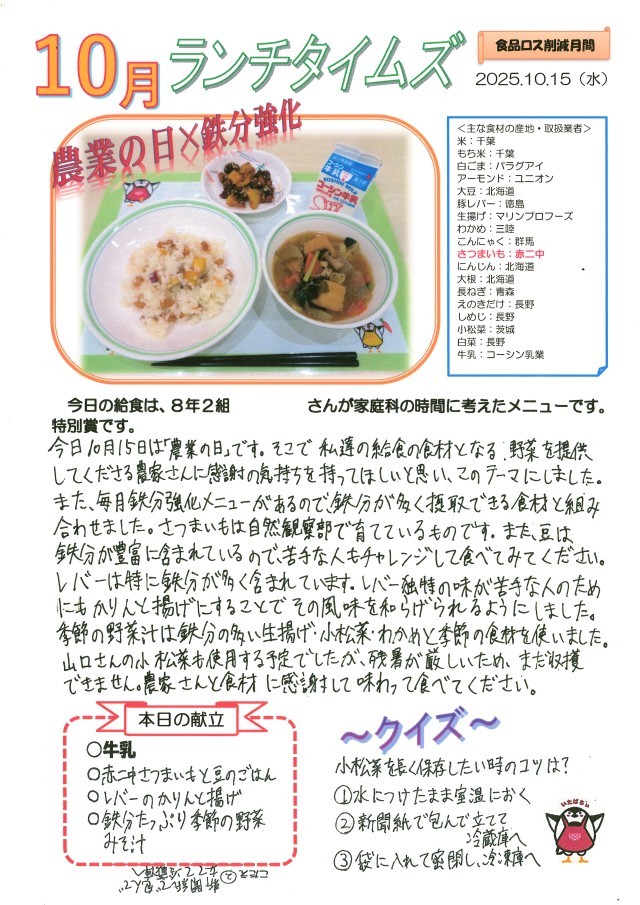 10月 ランチタイムズ
食品ロス削減月間
2025.10.15（水）
農業の日×鉄分強化
コーシン牛乳
＜主な食材の産地・取扱業者＞
米：千葉
もち米：千葉
白ごま：パラグアイ
アーモンド：ユニオン
大豆：北海道
豚レバー：徳島
生揚げ：マリンプロフーズ
わかめ：三陸
こんにゃく：群馬
さつまいも：赤二中
にんじん：北海道
大根：北海道
長ねぎ：青森
えのきだけ：長野
しめじ：長野
小松菜：茨城
白菜：長野
牛乳：コーシン乳業
今日の給食は、８年２組 さんが家庭科の時間に考えたメニューです。
特別賞です。
今日10月15日は「農業の日」です。そこで 私達の給食の食材となる 野菜を提供
してくださる農家さんに感謝の気持ちを持ってほしいと思い、このテーマにしました。
また、毎月鉄分強化メニューがあるので、鉄分が多く摂取できる食材と組み
合わせました。さつまいもは自然観察部で育てているものです。また、豆は
鉄分が豊富に含まれているので、苦手な人もチャレンジして食べてみてください。
レバーは特に鉄分が多く含まれています。レバー独特の味が苦手な人のため
にもかりんと揚げにすることでその風味を和らげられるようにしました。
季節の野菜汁は鉄分の多い生揚げ・小松菜・わかめと季節の食材を使いました。
山口さんの小松菜も使用する予定でしたが、残暑が厳しいため、まだ収穫
できません。農家さんと食材に感謝して味わって食べてください。
本日の献立
○牛乳
○赤二中さつまいもと豆のごはん
○レバーのかりんと揚げ
○鉄分たっぷり季節の野菜
みそ汁
～クイズ～
小松菜を長く保存したい時のコツは？
①水につけたまま室温におく
②新聞紙で包んで立てて
冷蔵庫へ
③袋に入れて密閉し、冷凍庫へ
こたえ ②
新聞紙で包んで
立てて冷蔵庫へ